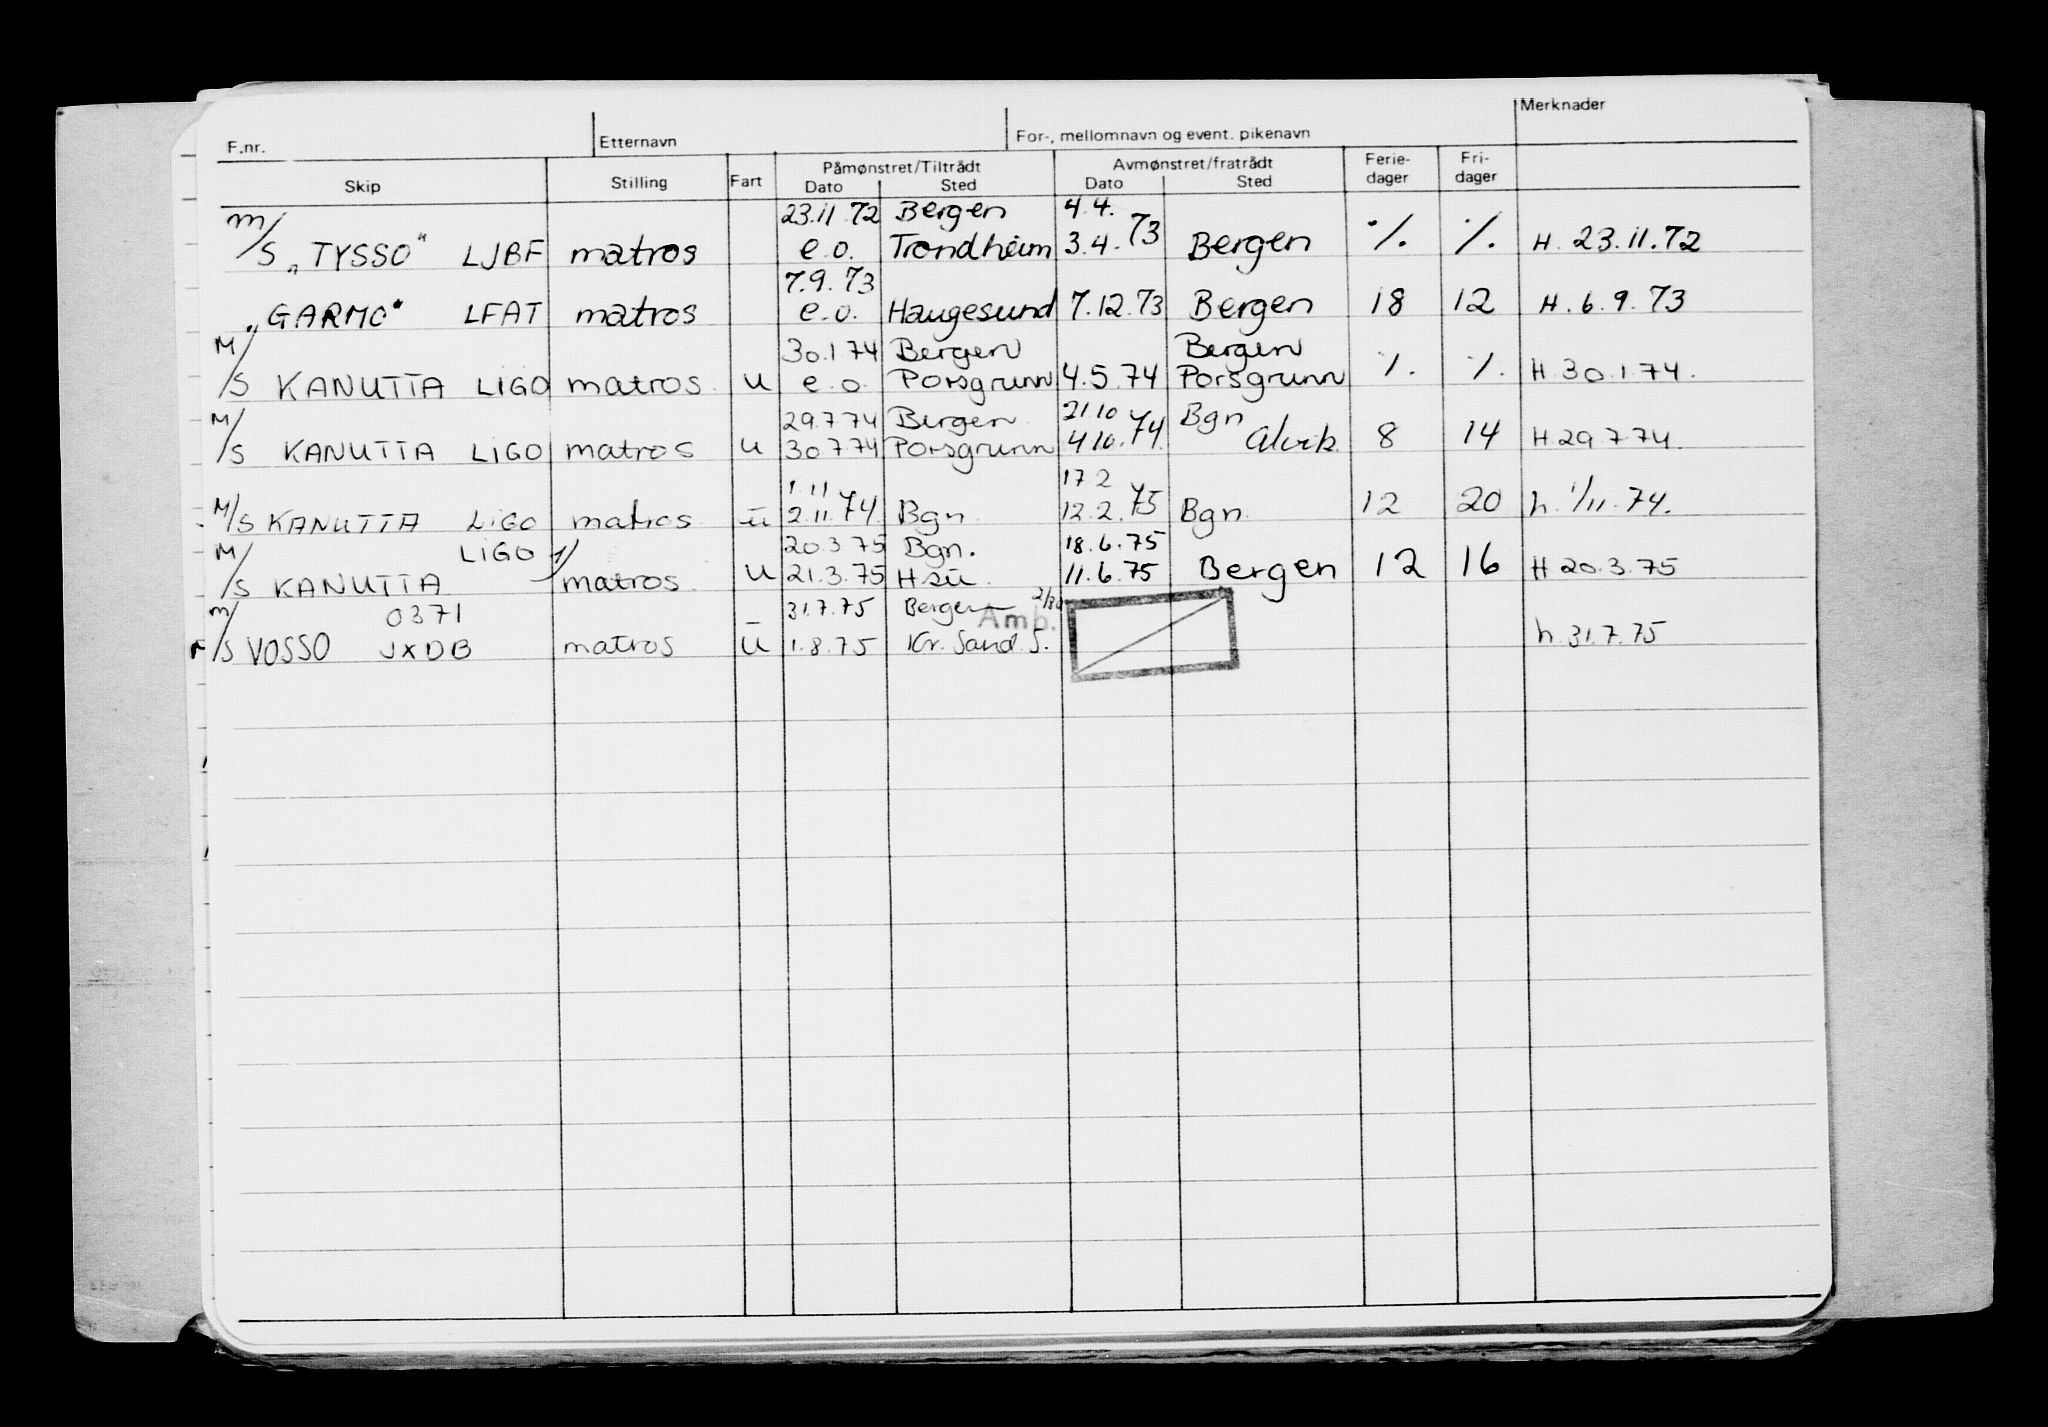 F.nr. Etternavn For-, mellomnavn og event. pikenavn Merknader
Skip Stilling Fart Påmønstret/Tiltrådt Avmønstret/fratrådt Ferie-dager Fri-dager
Dato Sted Dato Sted
m/ 23.11.72 Bergen 4.4.
S „TYSSO" LJBF matros e.o. Trondheim 3.4.73 Bergen ./. ./. H. 23.11.72
7.9.73
„GARMO" LFAT matros e.o. Haugesund 7.12.73 Bergen 18 12 H. 6.9.73
M/ 30.1.74 Bergen Bergen
S KANUTTA LIGO matros. u e.o. Porsgrunn 4.5.74 Porsgrunn ./. ./. H 30.1.74.
M/ 29.7.74 Bergen 21.10 Bgn
S KANUTTA LIGO matros u 30.7.74 Porsgrunn 4.10.74. Alvik. 8 14 H 29.7.74.
1.11 17.2
M/S KANUTTA LIGO matros u 2.11.74 Bgn. 12.2.75 Bgn. 12 20 h. 1/11.74.
M/ LIGO 1/ 20.3.75 Bgn. 18.6.75
S KANUTTA matros. u 21.3.75 H su. 11.6.75 Bergen 12 16 H 20.3.75
m/ 0371 31.7.75 Bergen Amb.
S VOSSO JXDB matros u 1.8.75 Kr. Sand. S. h. 31.7.75